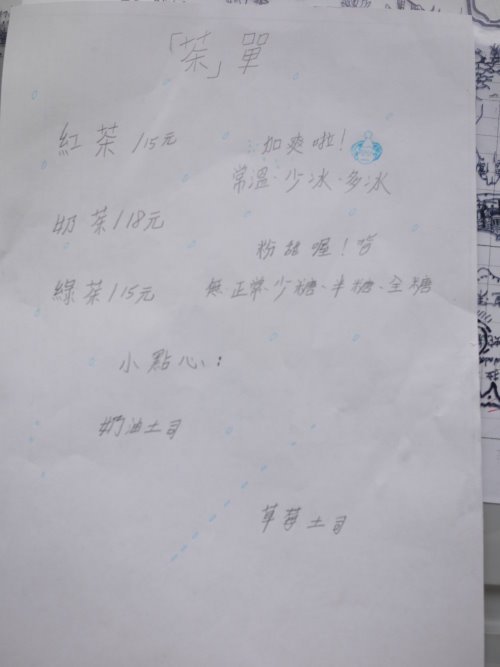 「茶」單
紅茶/15元
加爽啦!
常溫、少冰、多冰
奶茶/18元
粉甜喔!
綠茶/15元
無、正常、少糖、半糖、全糖
小點心:
奶油土司
草莓土司